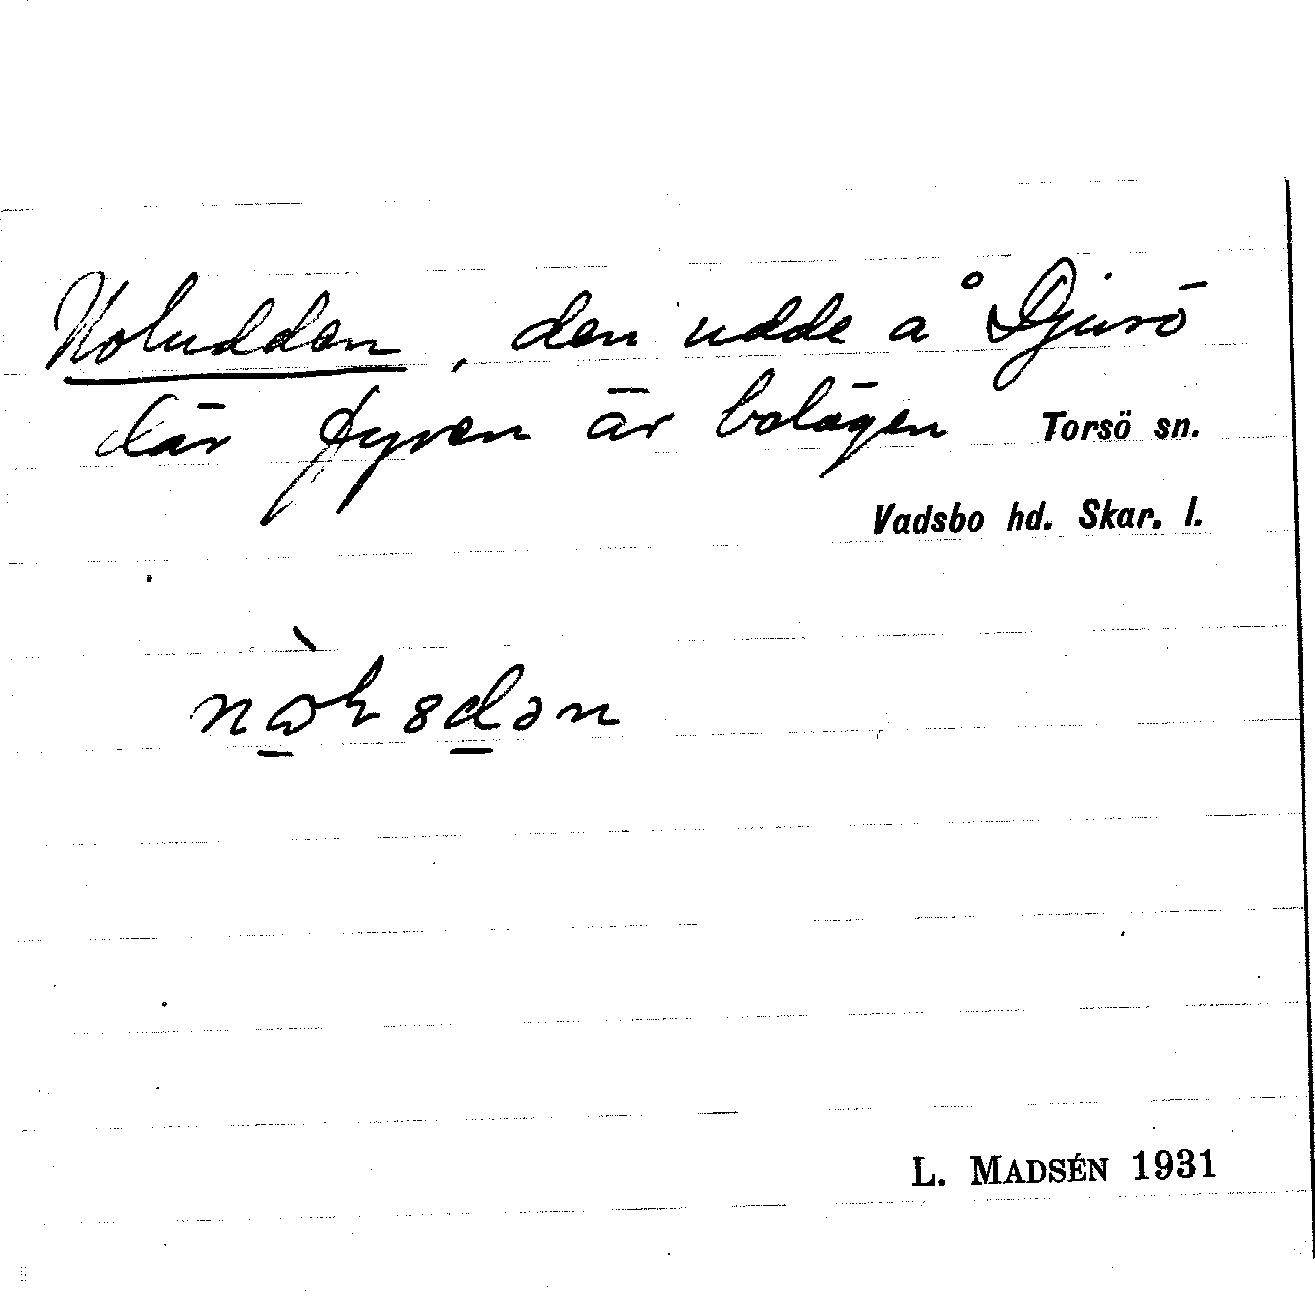 Noludden, den udde å Djurö
där fyren är belägen Torsö sn.
Vadsbo hd. Skar. l.
L. MADSÉN 1931